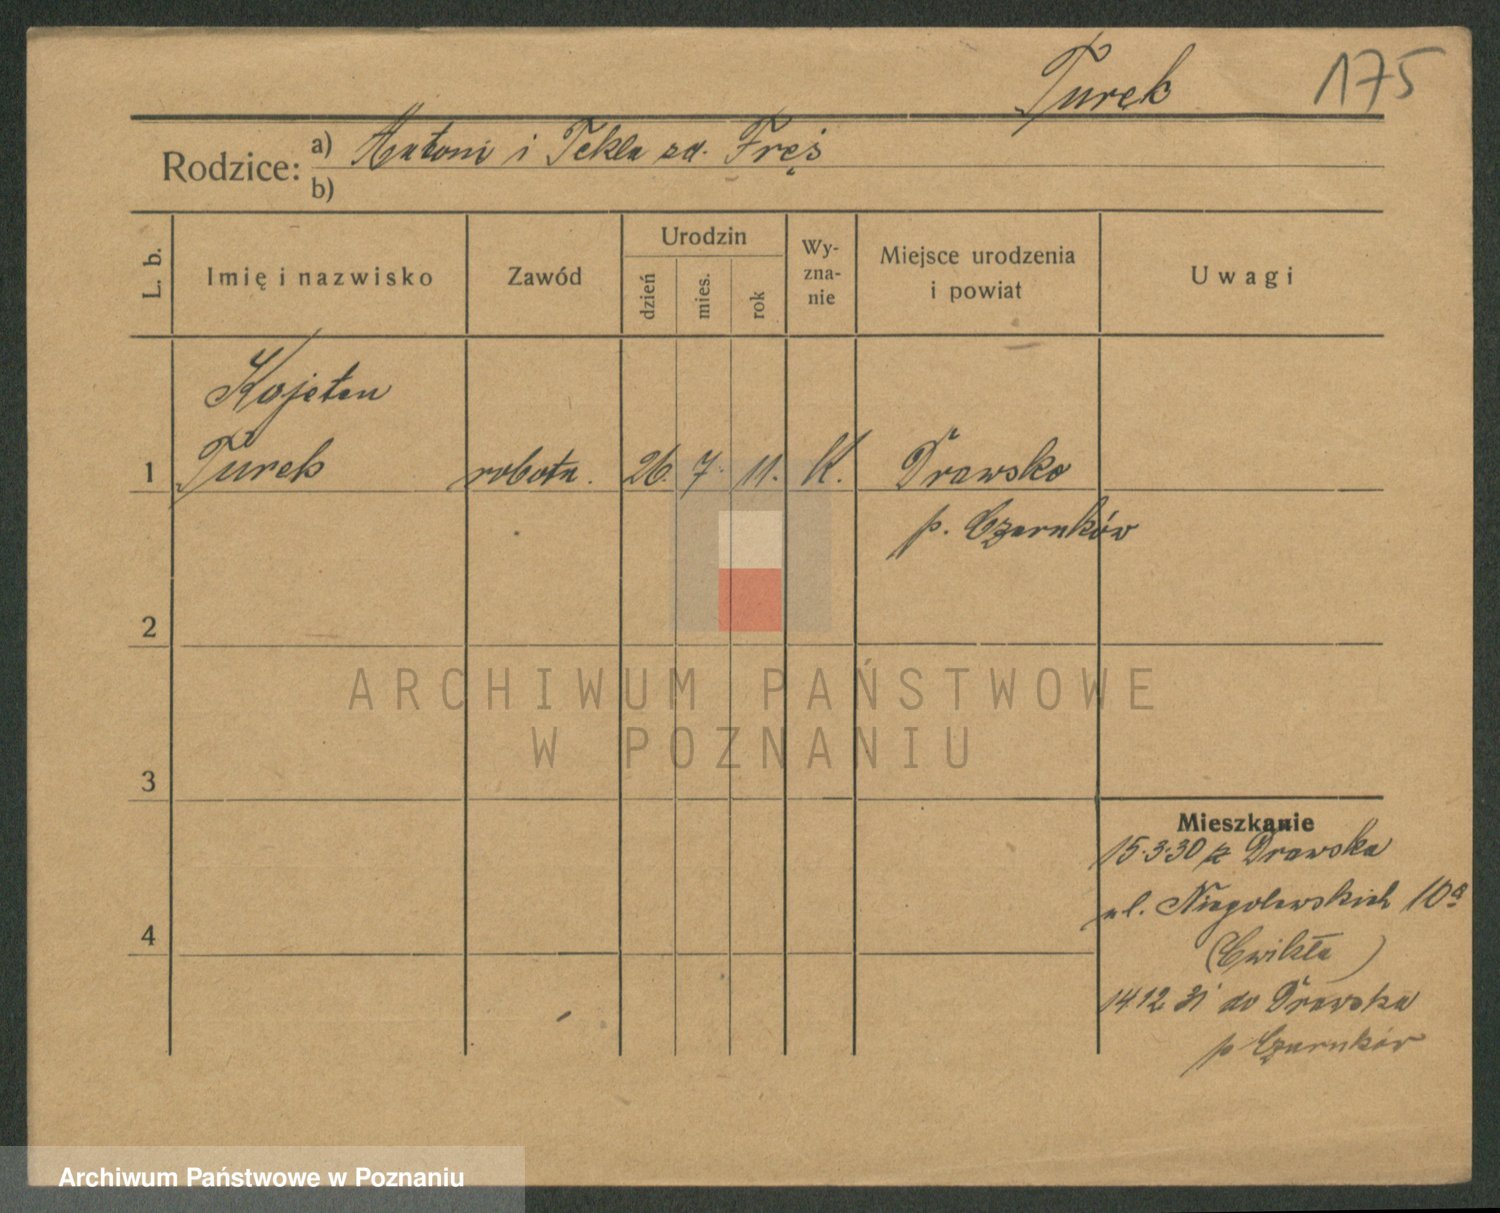 Turek 175
Rodzice: a) Antoni i Tekla zd. Fręś
b)
L. b.
Imię i nazwisko
Zawód
Urodzin
dzień
mies.
rok
Wy-
zna-
nie
Miejsce urodzenia
i powiat
Uwagi
Kajetan
1 Turek robotn. 26. 7. 11. K. Drawsko
p. Czarnków
2
3
4
Mieszkanie
15.3.30 z Drawska
ul. Niegolewskich 10a
(Ćwikła)
14 12 31 do Drawska
p Czarnków
ARCHIWUM PAŃSTWOWE
W POZNANIU
Archiwum Państwowe w Poznaniu